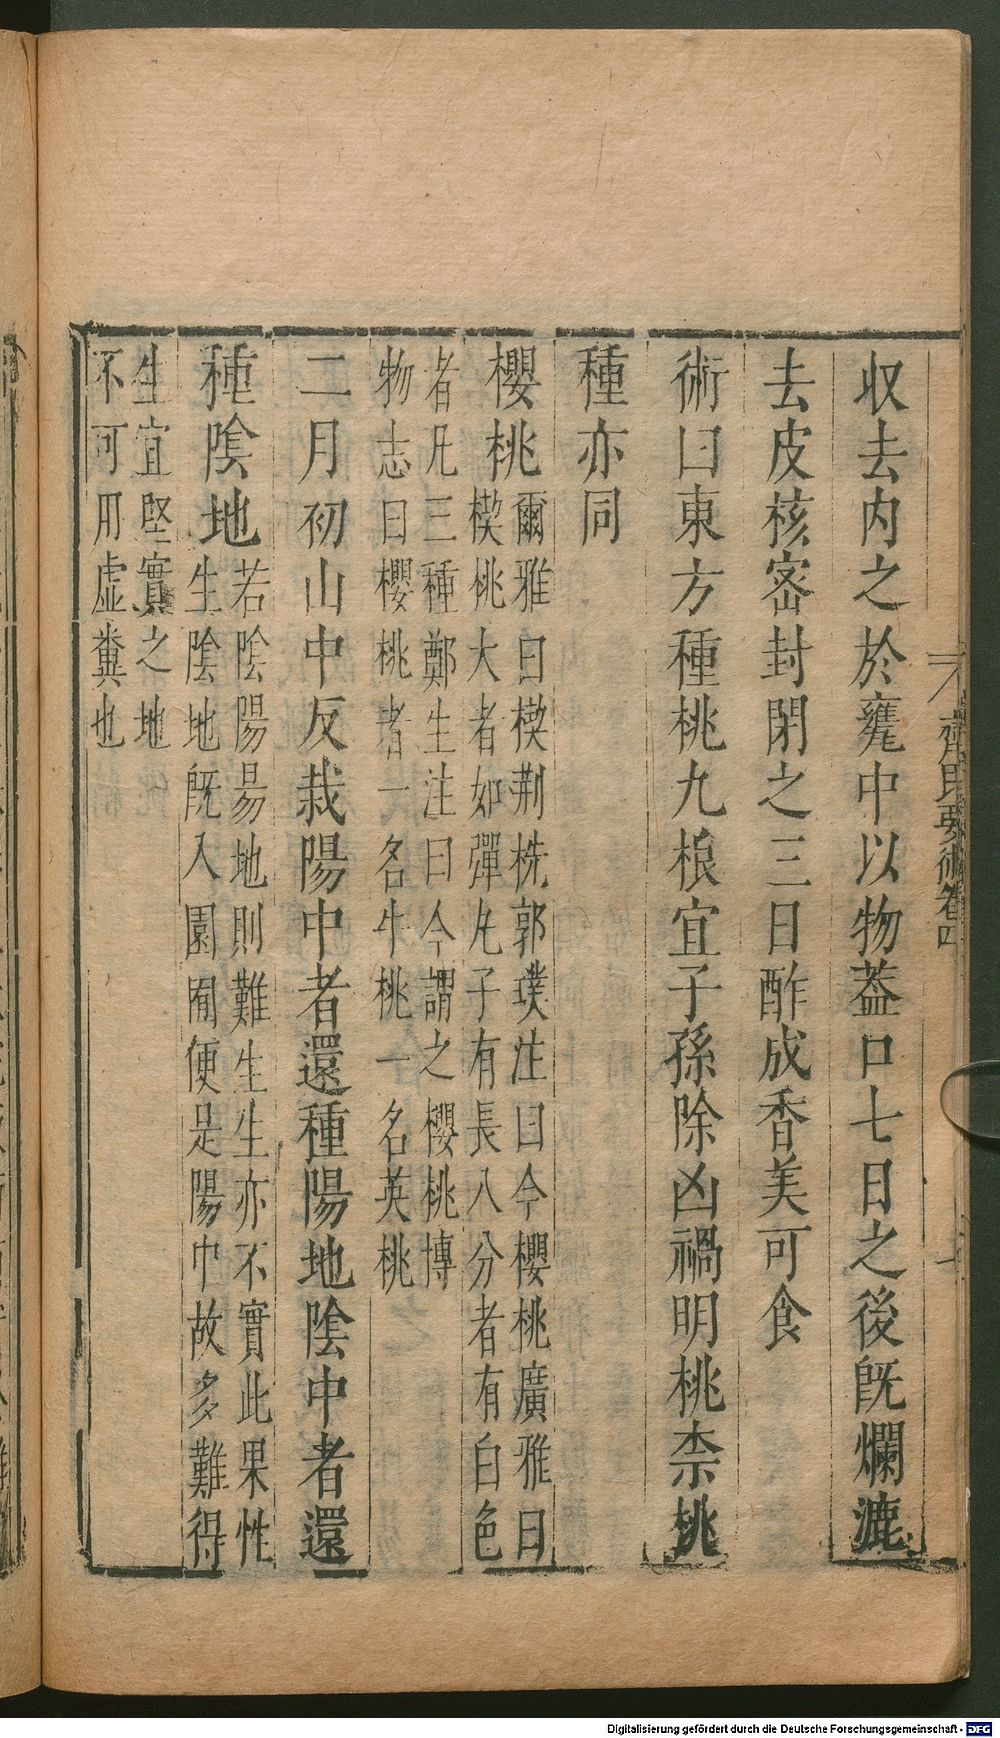 齊民要術卷四
收去内之於甕中以物葢口七日之後旣爛漉
去皮核宻封閉之三日酢成香美可食
術曰東方種桃九根宜子孫除凶禍明桃柰桃
種亦同
櫻桃
爾雅曰楔荆桃郭璞注曰今櫻桃廣雅曰
楔桃大者如彈丸子有長八分者有白色
者凡三種鄭生注曰今謂之櫻桃博
物志曰櫻桃者一名牛桃一名英桃
二月初山中反栽陽中者還種陽地隂中者還
種隂地
若隂陽易地則難生生亦不實此果性
生隂地旣入園囿便是陽中故多難得
生宜堅實之地
不可用虛糞也
Digitalisierung gefördert durch die Deutsche Forschungsgemeinschaft - DFG